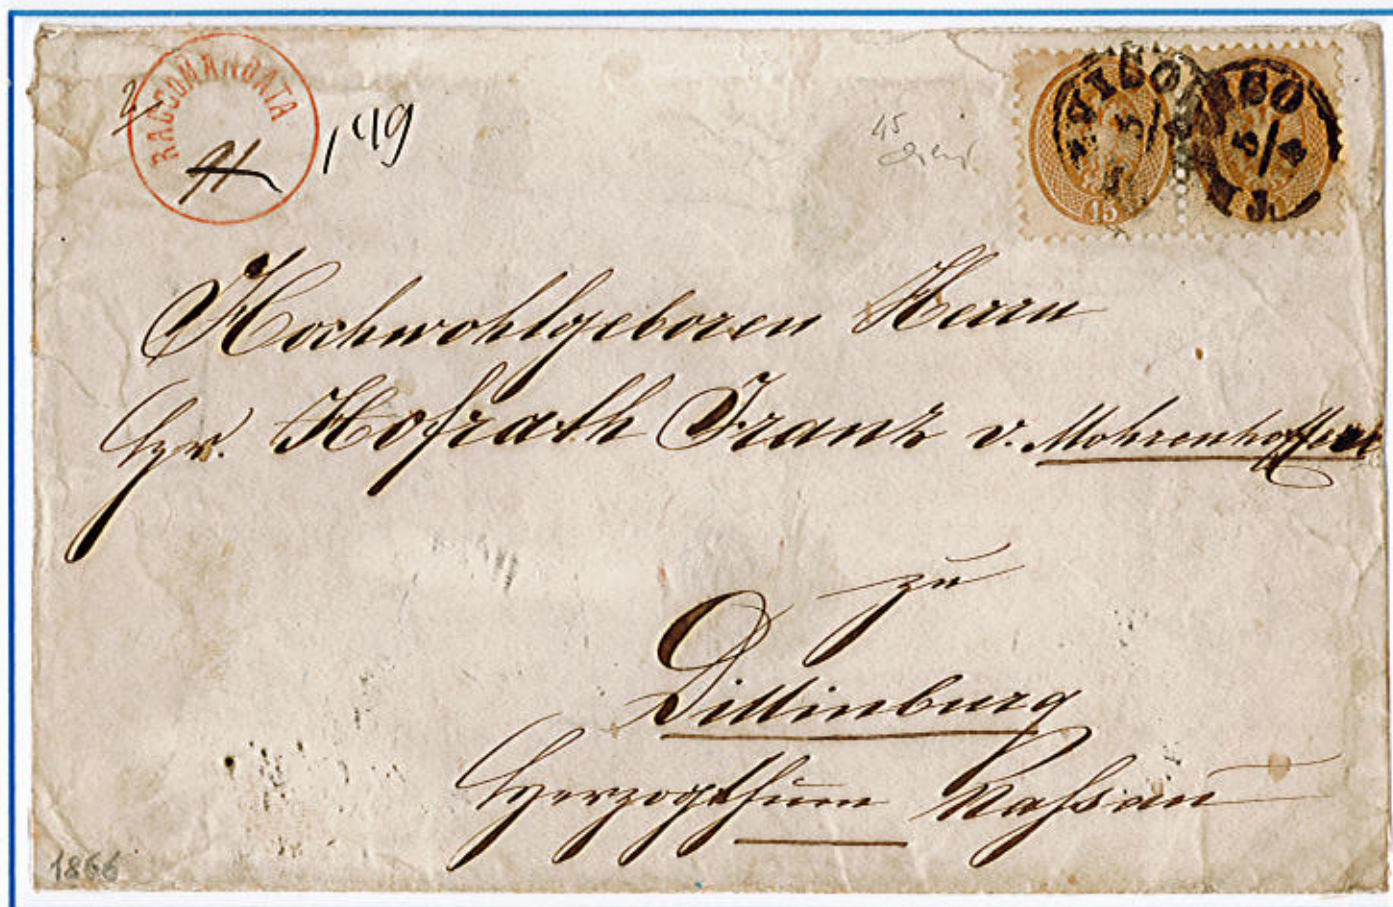 RACCOMANDATA
2
91
149
45
VISO
5
15
VISO
5/3
Hochwohlgeboren Herrn
Hofrath Franz v. Mohrenhoffen
zu
Dillinburg
Herzogthum Nassau
1866